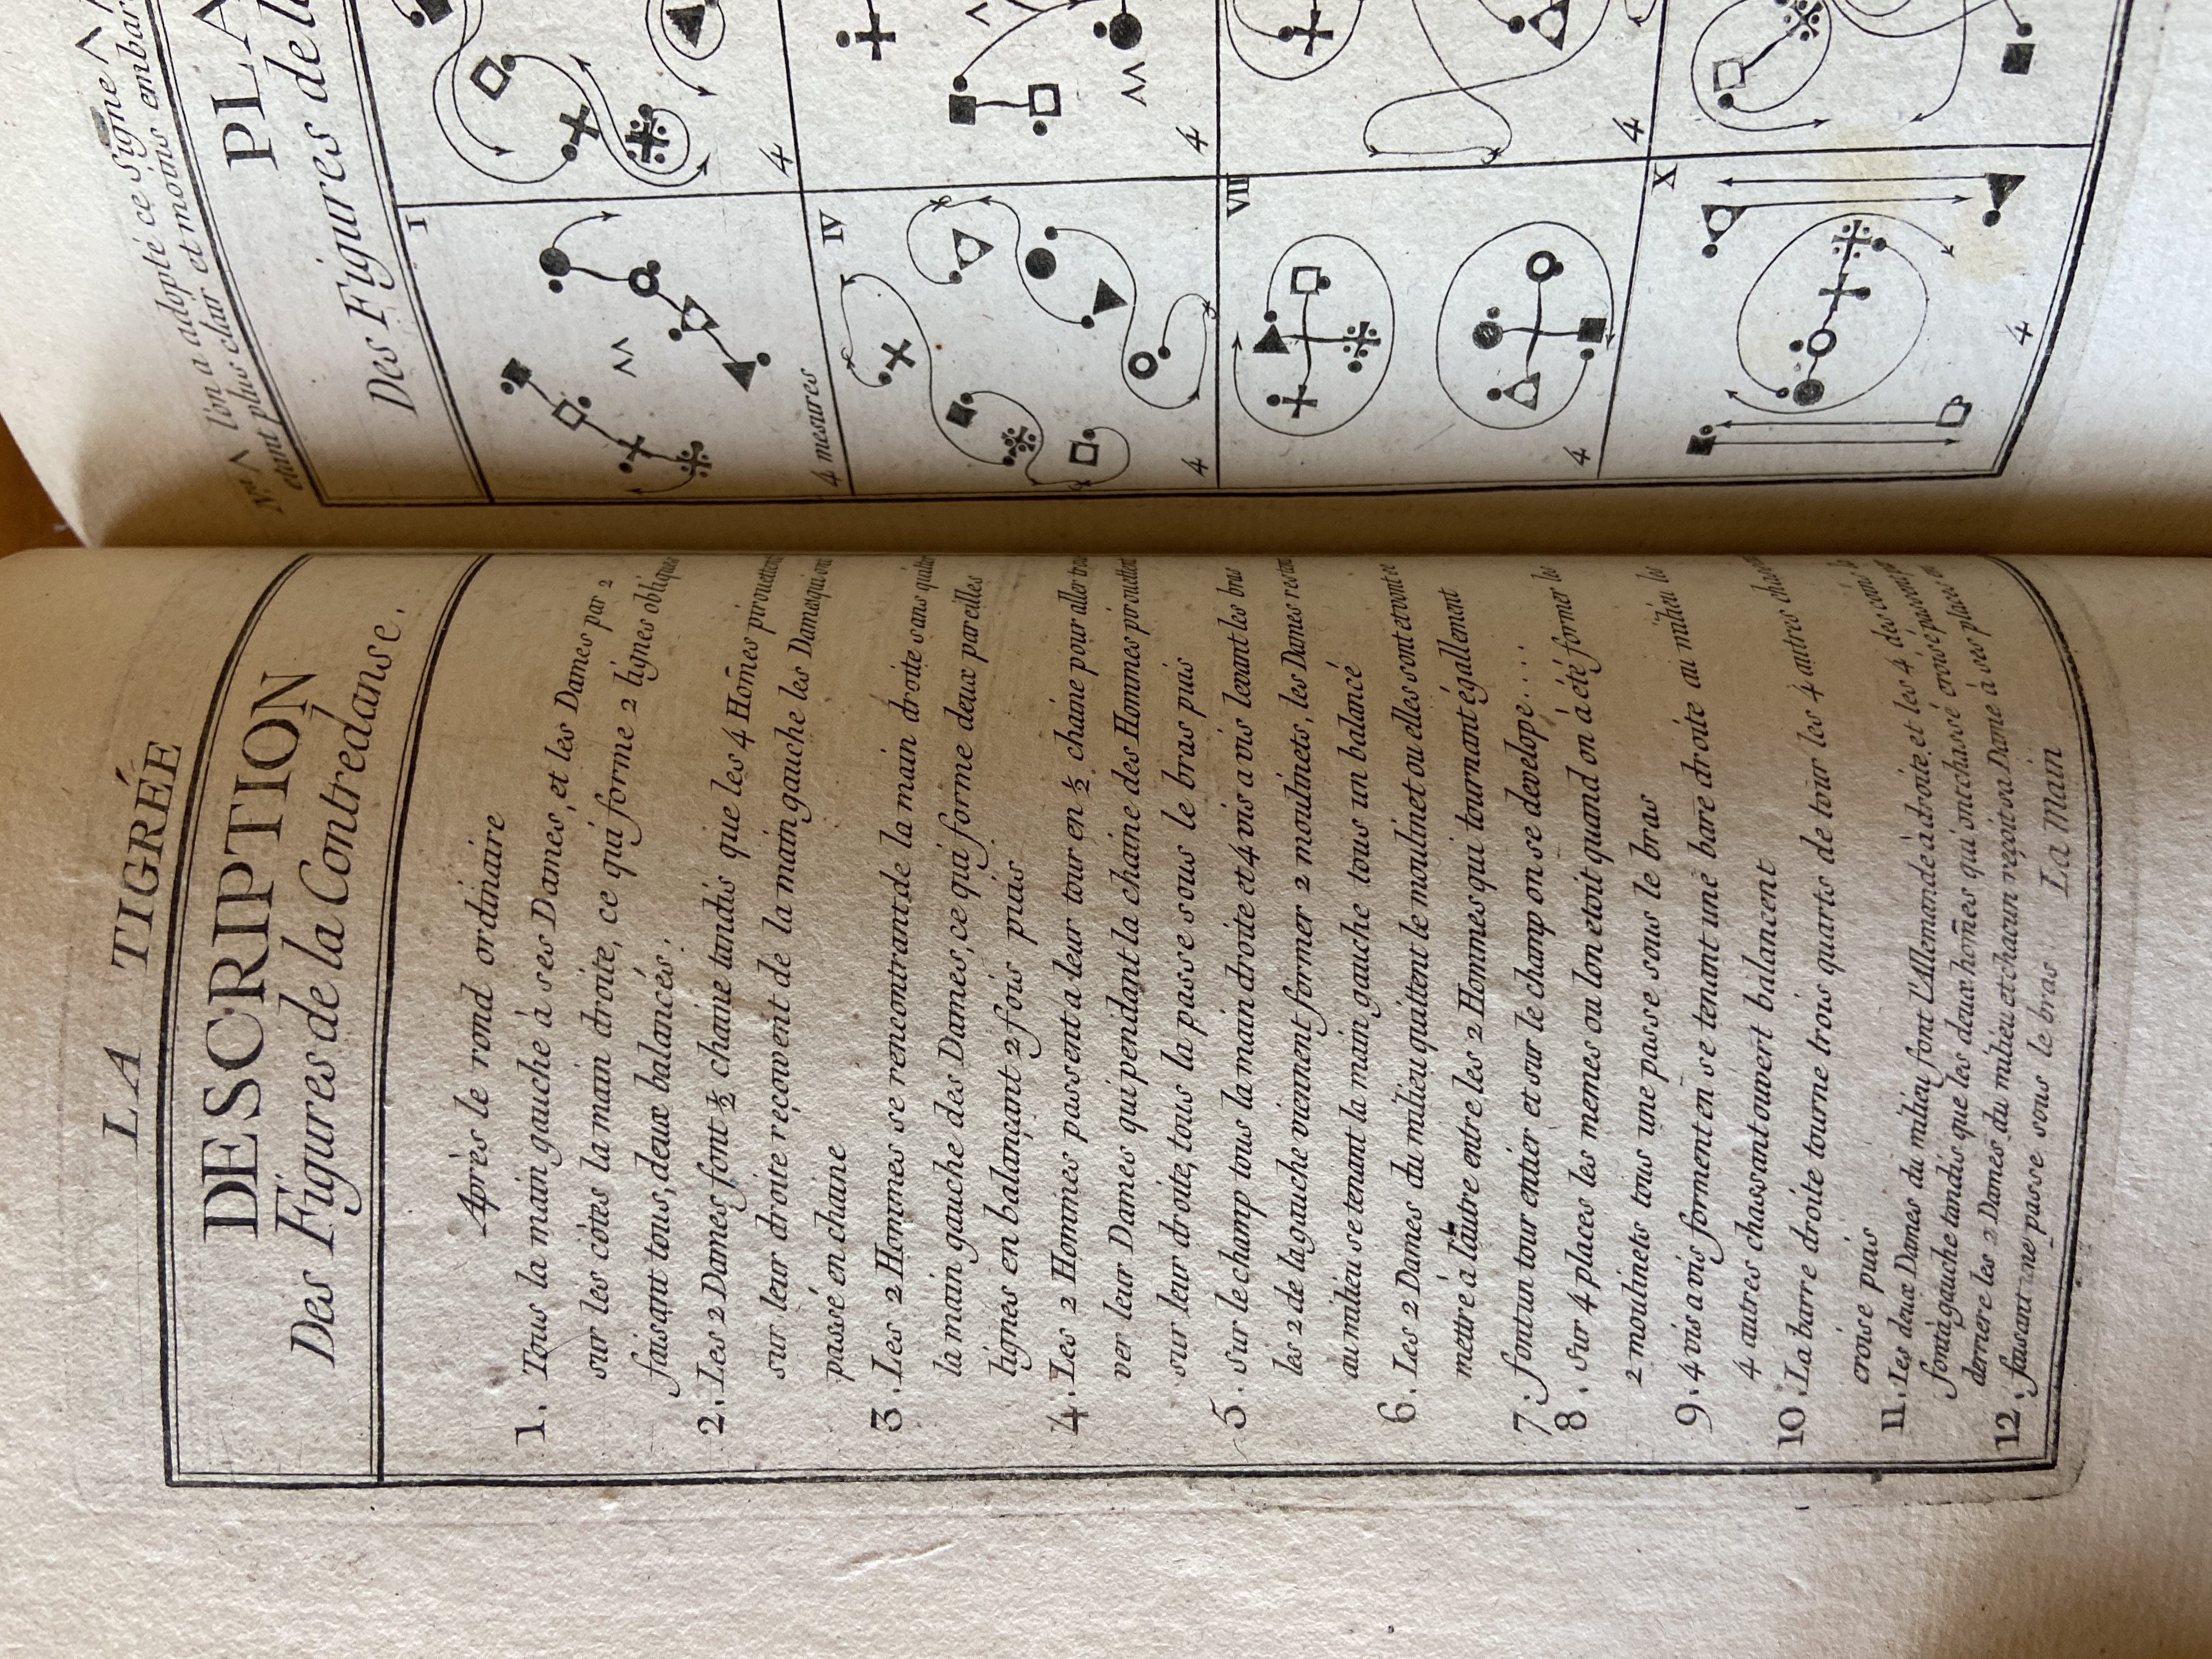 LA TIGRÉE
DESCRIPTION
Des Figures de la Contredanse.
Après le rond ordinaire
1. Tous la main gauche à ses Dames, et les Dames par 2
sur les côtes la main droite, ce qui forme 2 lignes obliques
faisant tous, deux balancés.
2. Les 2 Dames font ½ chaine tandis que les 4 Hom̄es pirouettent
sur leur droite reçoivent de la main gauche les Dames qui ont
passé en chaine
3. Les 2 Hommes se rencontrant de la main droite sans quitter
la main gauche des Dames, ce qui forme deux pareilles
lignes en balançant 2 fois puis
4. Les 2 Hommes passent a leur tour en ½ chaine pour aller trou
ver leur Dames qui pendant la chaine des Hommes pirouettent
sur leur droite, tous la passe sous le bras puis
5. sur le champ tous la main droite et 4 vis a vis levant les bras
les 2 de la gauche viennent former 2 moulinets, les Dames restant
au milieu se tenant la main gauche tous un balancé
6. Les 2 Dames du milieu quittent le moulinet ou elles sont et vont se
mettre à l'autre entre les 2 Hommes qui tournant égallement
7. font un tour entier et sur le champ on se develope....
8. sur 4 places les memes ou lon etoit quand on à été former les
2 moulinets tous une passe sous le bras
9. 4 vis a vis forment en se tenant une bare droite au milieu les
4 autres chassant ouvert balancent
10. La barre droite tourne trois quarts de tour les 4 autres chassent
croisé puis
11. Les deux Dames du milieu font l'Allemande à droite, et les 4 des coins la
font à gauche tandis que les deux hom̄es qui ont chassé croisé passent
derrere les 2 Dames du milieu et chacun reçoit sa Dame à ses places en
12. faisant une passe sous le bras. La Main
N.ta ^ l'on a adopté ce Signe ^
étant plus clair et moins embar
PLA
Des Figures de la
I
4 mesures
4
IV
4
4
VIII
4
4
X
4